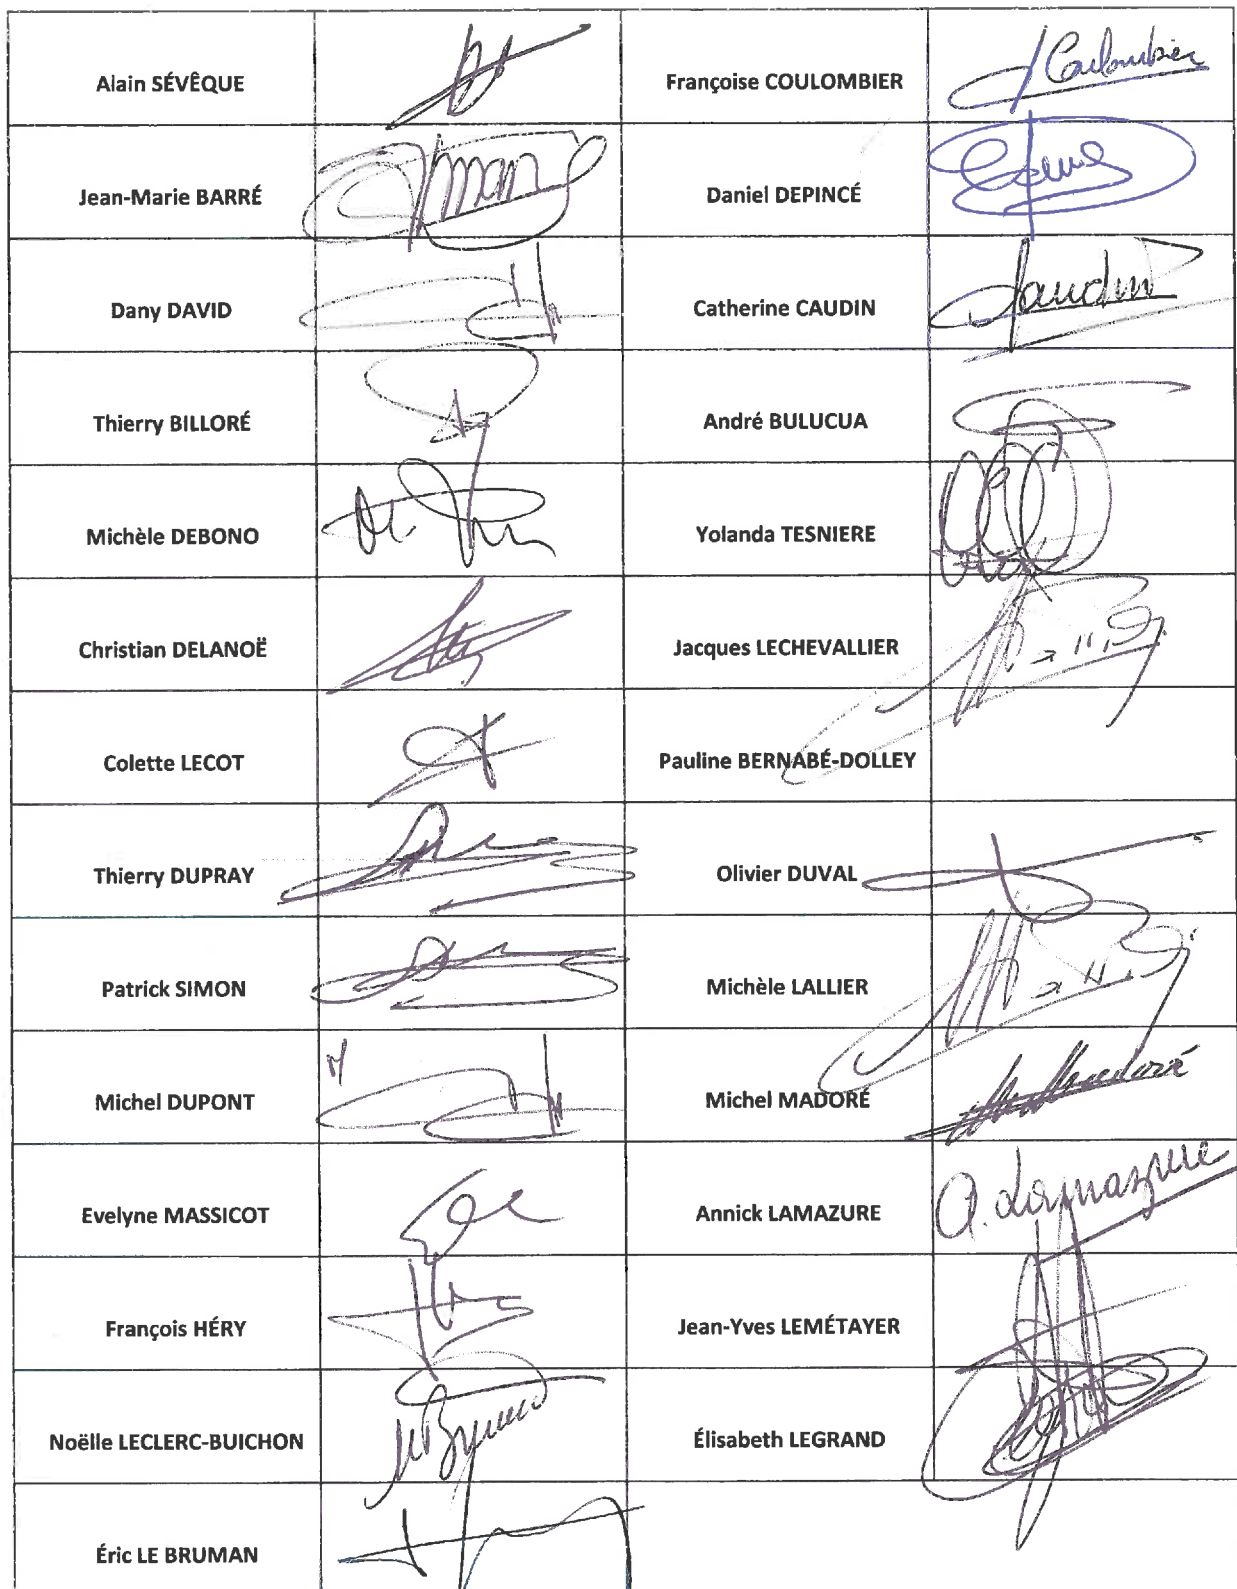 Alain SÉVÊQUE
Françoise COULOMBIER
Coulombier
Jean-Marie BARRÉ
Daniel DEPINCÉ
Dany DAVID
Catherine CAUDIN
Caudin
Thierry BILLORÉ
André BULUCUA
Michèle DEBONO
Yolanda TESNIERE
Christian DELANOË
Jacques LECHEVALLIER
Colette LECOT
Pauline BERNABÉ-DOLLEY
Thierry DUPRAY
Olivier DUVAL
Patrick SIMON
Michèle LALLIER
Michel DUPONT
Michel MADORÉ
Evelyne MASSICOT
Annick LAMAZURE
A. Lamazure
François HÉRY
Jean-Yves LEMÉTAYER
Noëlle LECLERC-BUICHON
Élisabeth LEGRAND
Éric LE BRUMAN